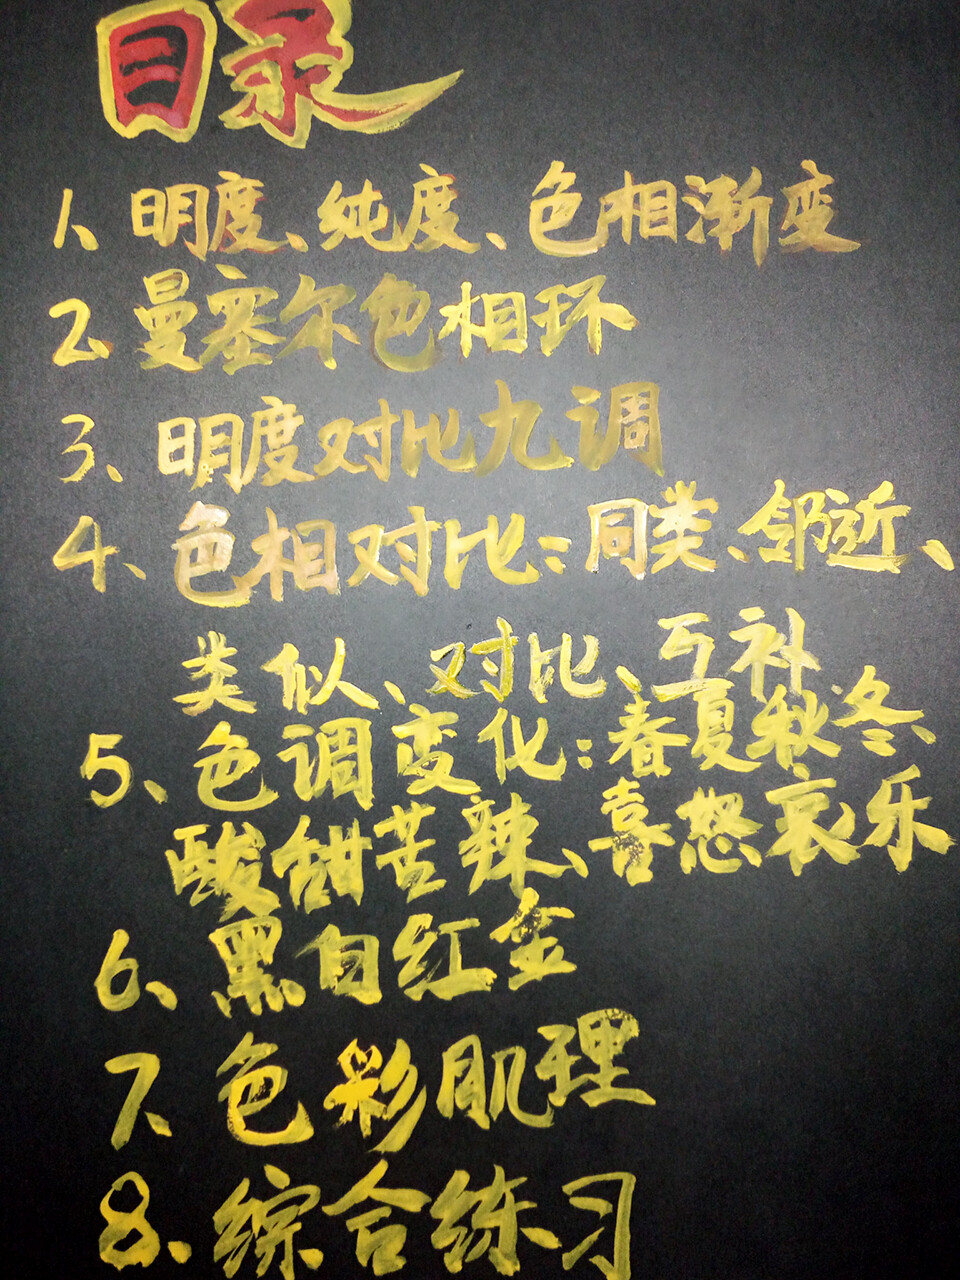 目录
1、明度、纯度、色相渐变
2、曼塞尔色相环
3、明度对比九调
4、色相对比：同类、邻近、
类似、对比、互补
5、色调变化：春夏秋冬、
酸甜苦辣、喜怒哀乐
6、黑白红金
7、色彩肌理
8、综合练习